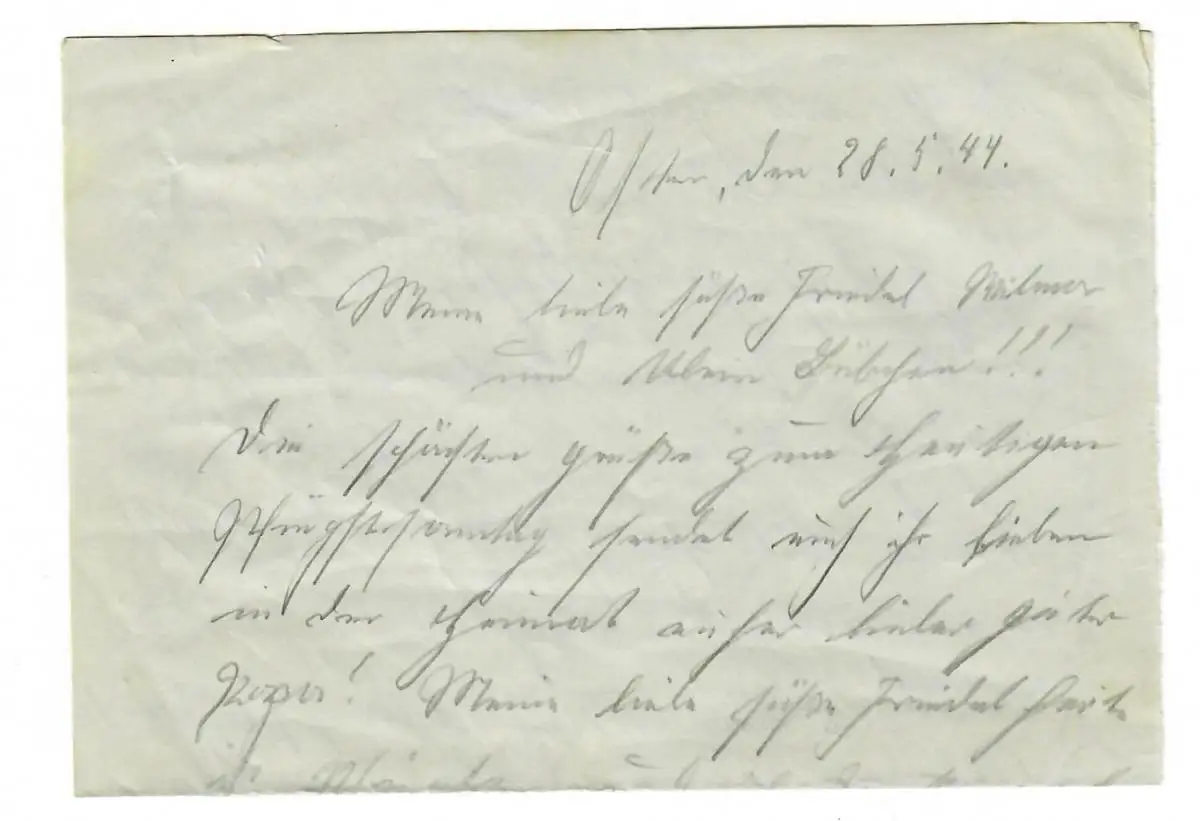 Osten, den 28.5.44.
Meine liebe süße Friedel Wilma
und klein Bübchen!!!
Die schösten grüße zum heutigen
Pfingstsonntag sendet euch ihr lieben
in der Heimat euher lieber guter
Papa! Meine liebe süße Friedel heute